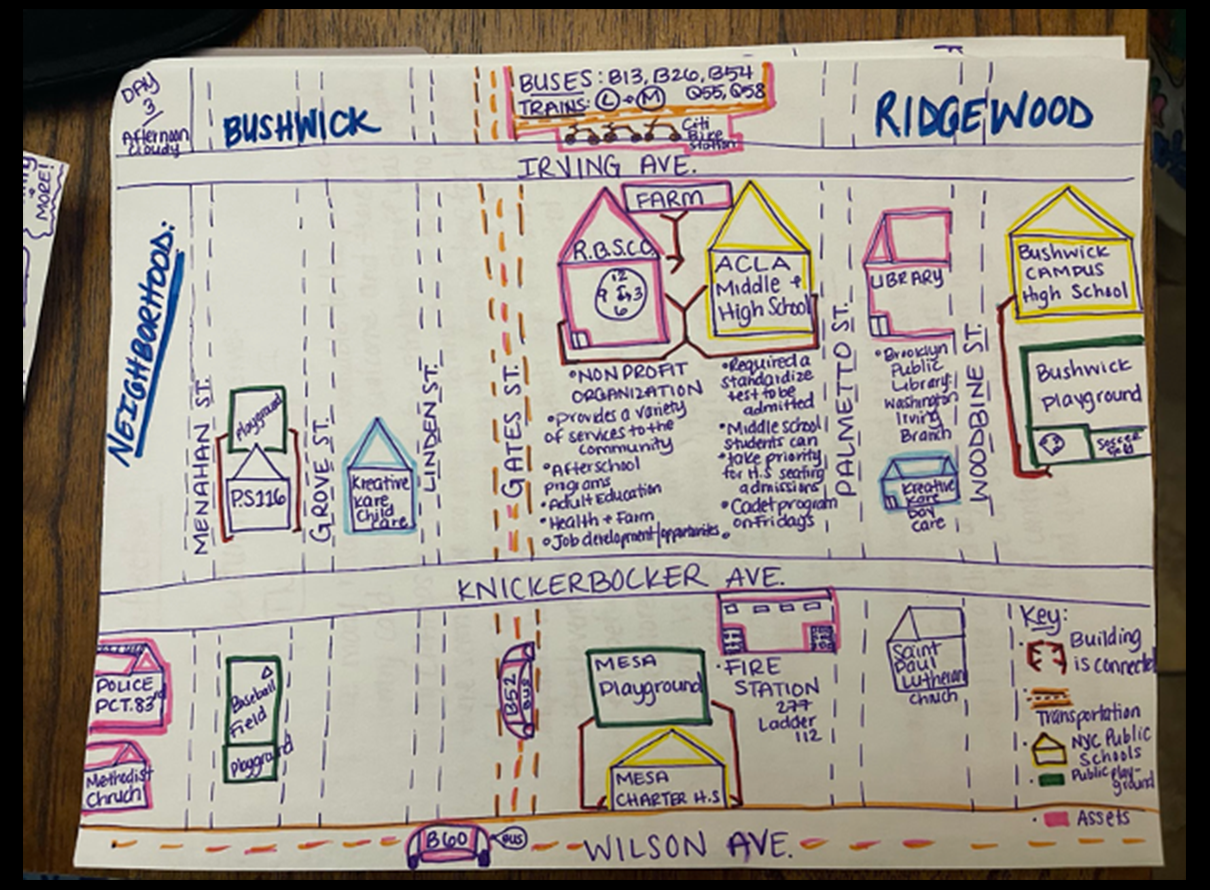 DAY
3
Afternoon
Cloudy
BUSHWICK
BUSES: B13, B26, B54
Q55, Q58
TRAINS: L + M
Citi
Bike
Station
RIDGEWOOD
MORE!
IRVING AVE.
NEIGHBORHOOD:
MENAHAN ST.
Playground
P.S116
GROVE ST.
Kreative
Kare
Child
Care
LINDEN ST.
GATES ST.
FARM
R.B.S.C.C
12
9 3
6
ACLA
Middle +
High School
•NON PROFIT
ORGANIZATION
•provides a variety
of services to the
community
•Afterschool
programs
•Adult Education
•Health + Farm
•Job development/opportunities
•Required a
standardize
test to be
admitted
•Middle school
students can
•take priority
for H.S seating
admissions
•Cadet program
on Fridays
PALMETTO ST.
LIBRARY
•Brooklyn
Public
Library:
Washington
Irving
Branch
Kreative
Kare
Day
care
WOODBINE ST.
Bushwick
CAMPUS
High School
Bushwick
Playground
Soccer
field
KNICKERBOCKER AVE.
POLICE
PCT. 83rd
Methodist
Chruch
Baseball
Field
Playground
B52
BUS
MESA
Playground
MESA
CHARTER H.S
•FIRE
STATION
277
Ladder
112
Saint
Paul
Lutheran
Chruch
Key:
Building
is connected
Transportation
NYC Public
Schools
Public play-
ground
Assets
B60
BUS
WILSON AVE.